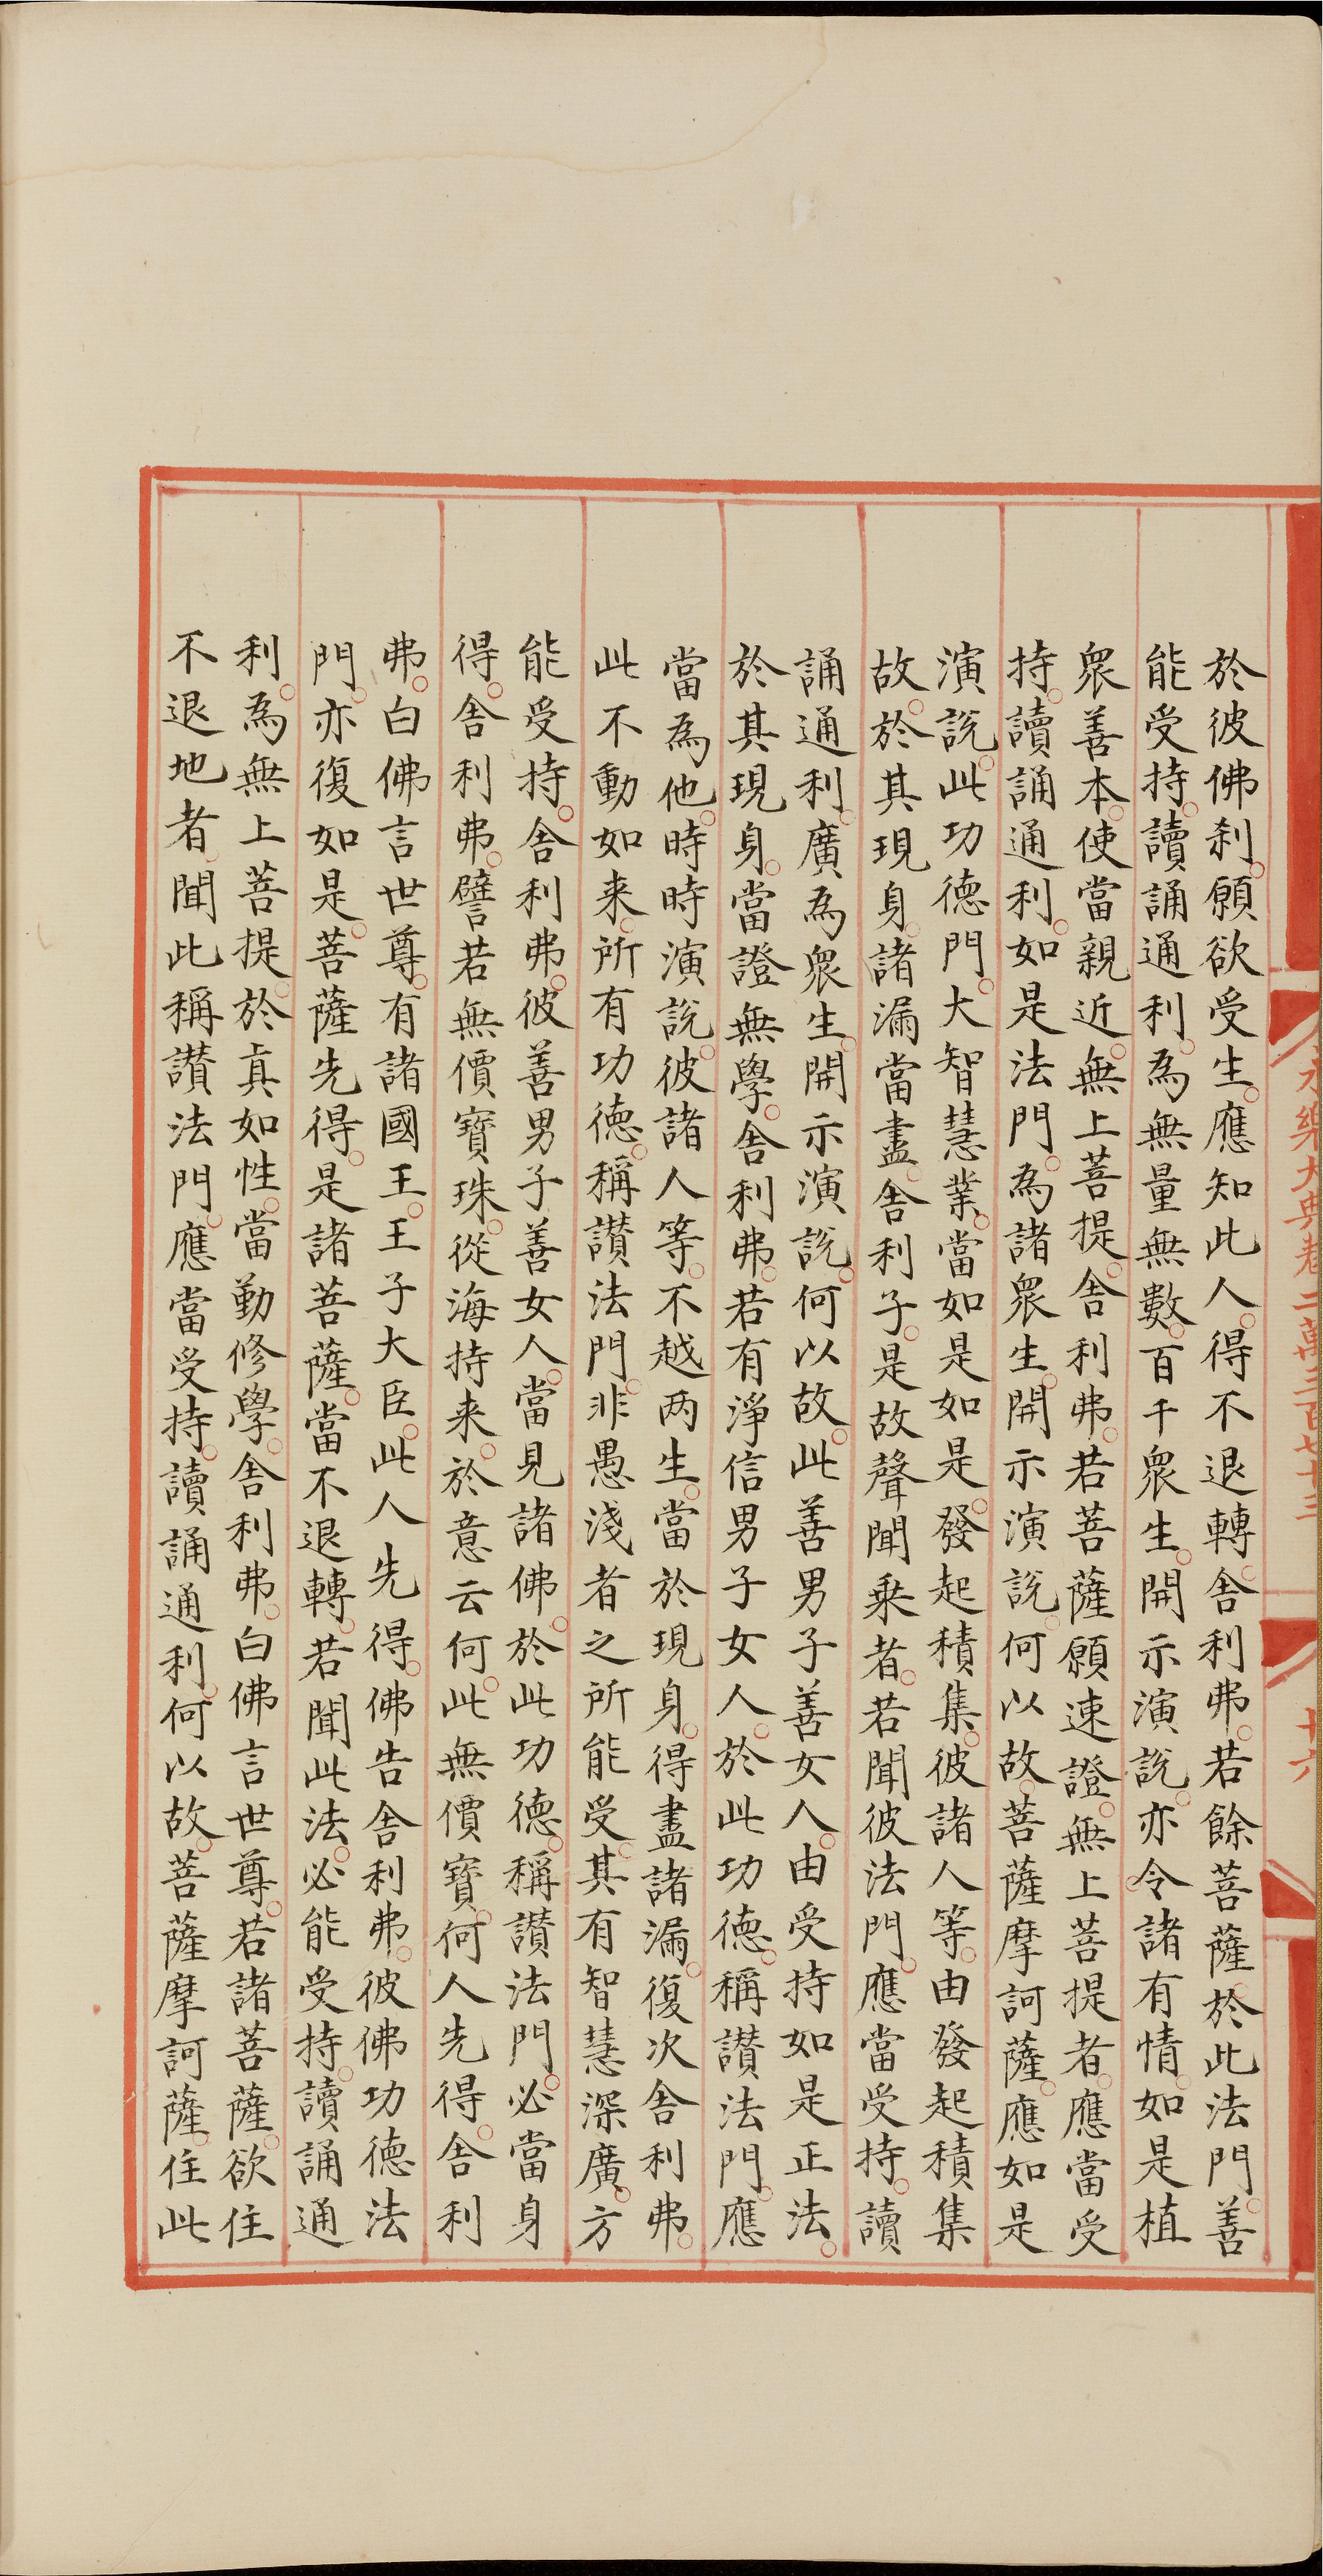 永樂大典卷二萬三百七十三
十六
於彼佛刹。願欲受生。應知此人。得不退轉。舎利弗。若餘菩薩。於此法門。善
能受持。讀誦通利。為無量無數。百千衆生。開示演說。亦令諸有情。如是植
衆善本。使當親近。無上菩提。舎利弗。若菩薩願速證。無上菩提者。應當受
持。讀誦通利。如是法門。為諸衆生。開示演說。何以故。菩薩摩訶薩。應如是
演說。此功德門。大智慧業。當如是如是。發起積集。彼諸人等。由發起積集
故。於其現身。諸漏當盡。舎利子。是故聲聞乗者。若聞彼法門。應當受持。讀
誦通利。廣為衆生。開示演說。何以故。此善男子善女人。由受持如是正法。
於其現身。當證無學。舎利弗。若有淨信男子女人。於此功德。稱讃法門。應
當為他。時時演說。彼諸人等。不越两生。當於現身。得盡諸漏。復次舎利弗。
此不動如来。所有功德。稱讃法門。非愚淺者之所能受。其有智慧深廣。方
能受持。舎利弗。彼善男子善女人。當見諸佛。於此功德。稱讃法門。必當身
得。舎利弗。譬若無價寶珠。從海持来。於意云何。此無價寶。何人先得。舎利
弗。白佛言世尊。有諸國王。王子大臣。此人先得。佛告舎利弗。彼佛功德法
門。亦復如是。菩薩先得。是諸菩薩。當不退轉。若聞此法。必能受持。讀誦通
利。為無上菩提。於真如性。當勤修學。舎利弗。白佛言世尊。若諸菩薩。欲住
不退地者。聞此稱讃法門。應當受持。讀誦通利。何以故。菩薩摩訶薩。住此